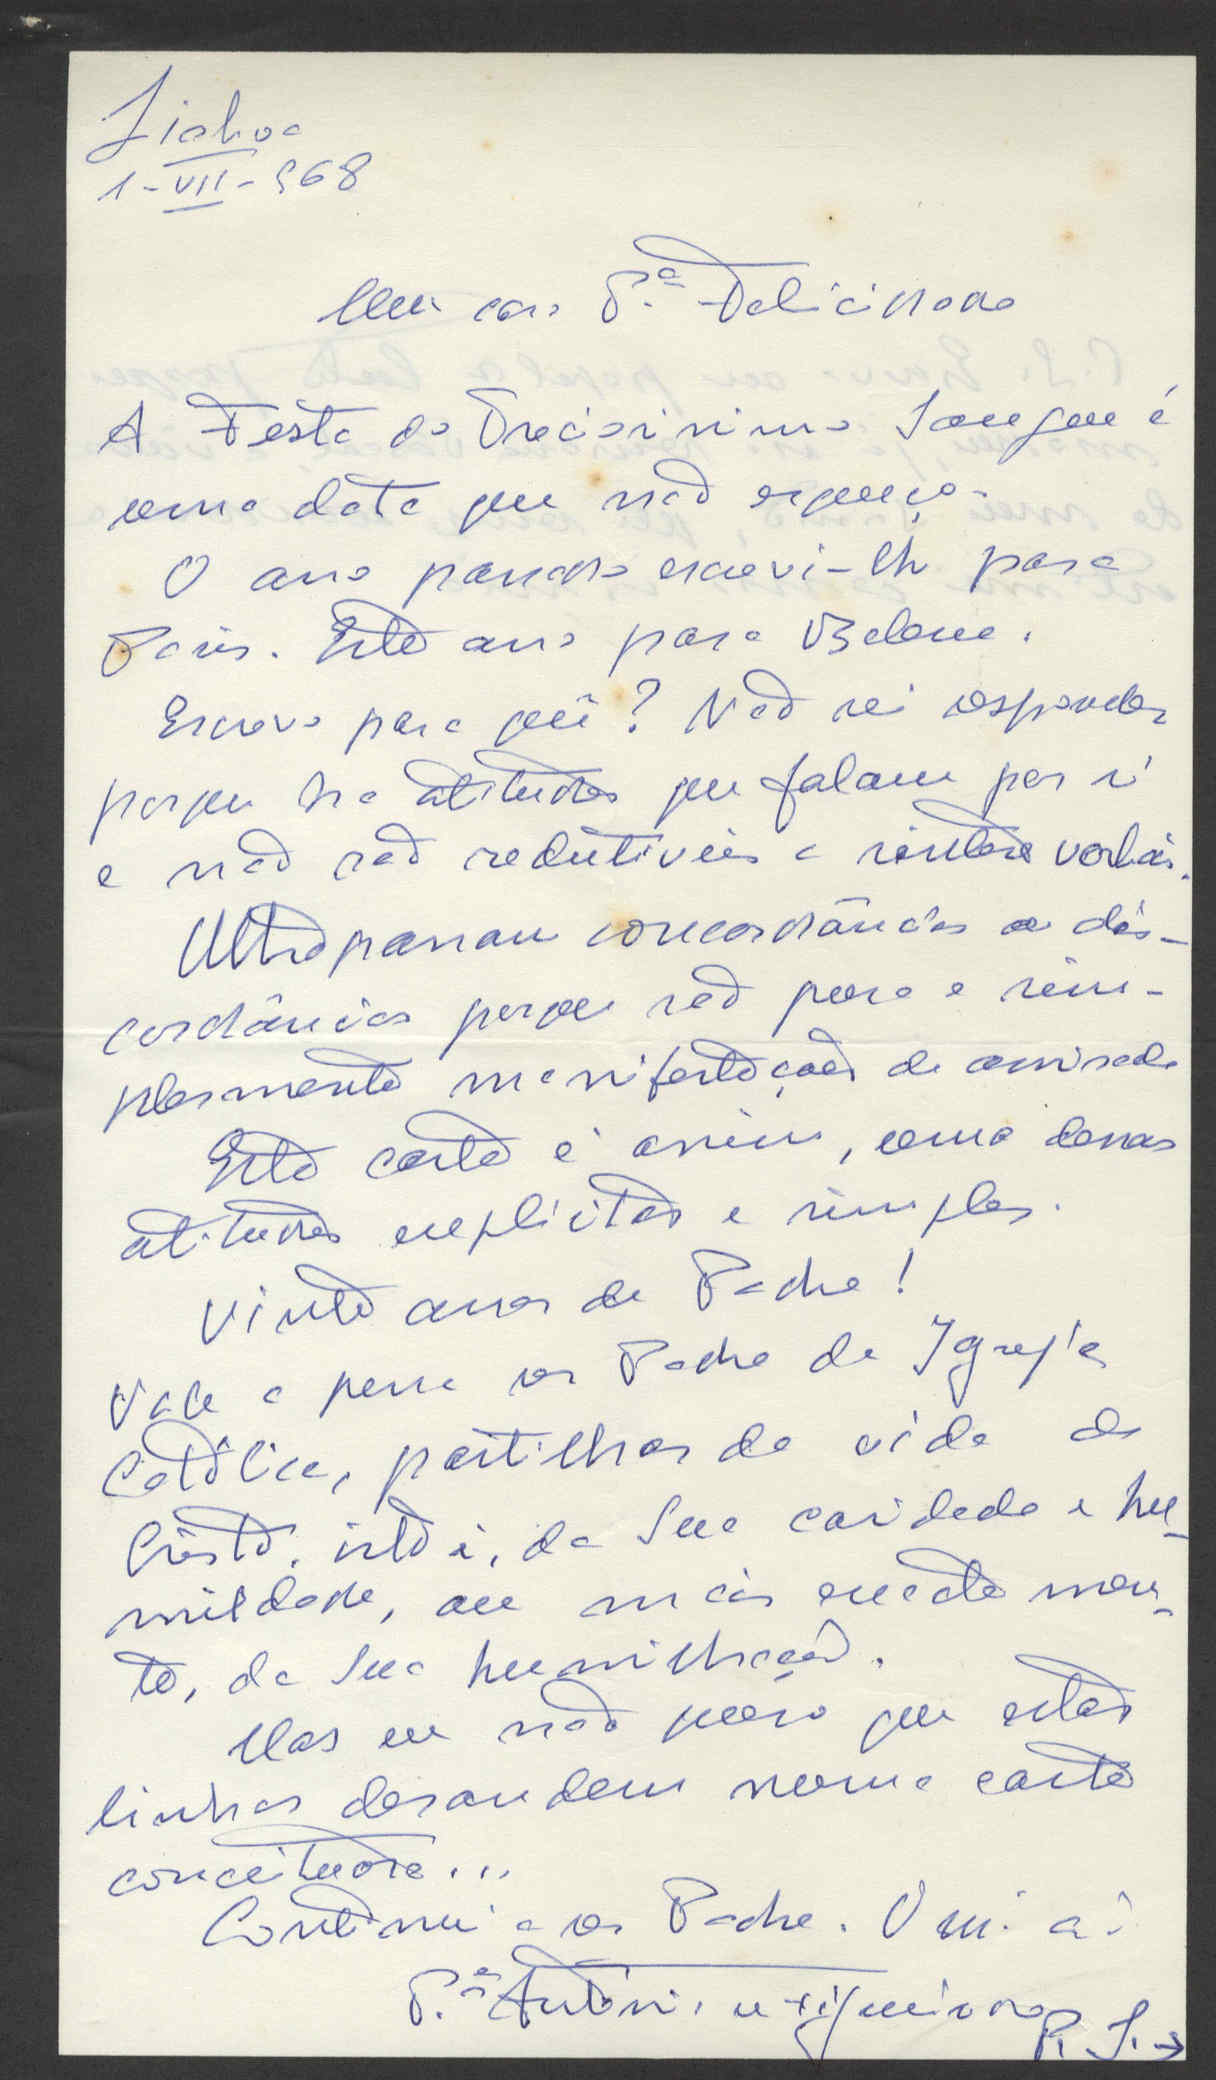 Lisboa
1-VII-968
Meu caro P.e Felicidade
A Festa do Preciosíssimo Sangue é
uma data que não esqueço.
O ano passado escrevi-lhe para
Paris. Este ano para Belém.
Escrevo para quê? Não sei responder
porque há atitudes que falam por si
e não são redutíveis a sínteses verbais.
Ultrapassam concordâncias ou dis-
cordâncias porque são pura e sim-
plesmente manifestações de amizade
Esta carta é assim, uma dessas
atitudes explícitas e simples.
Vinte anos de Padre!
Vale a pena ser Padre da Igreja
Católica, partilhar da vida de
Cristo, isto é, da Sua caridade e hu-
mildade, ou mais exactamen-
te, da Sua humilhação.
Mas eu não quero que estas
linhas desandem numa carta
conceituosa...
Continue a ser Padre.
P.e António
P. S. →